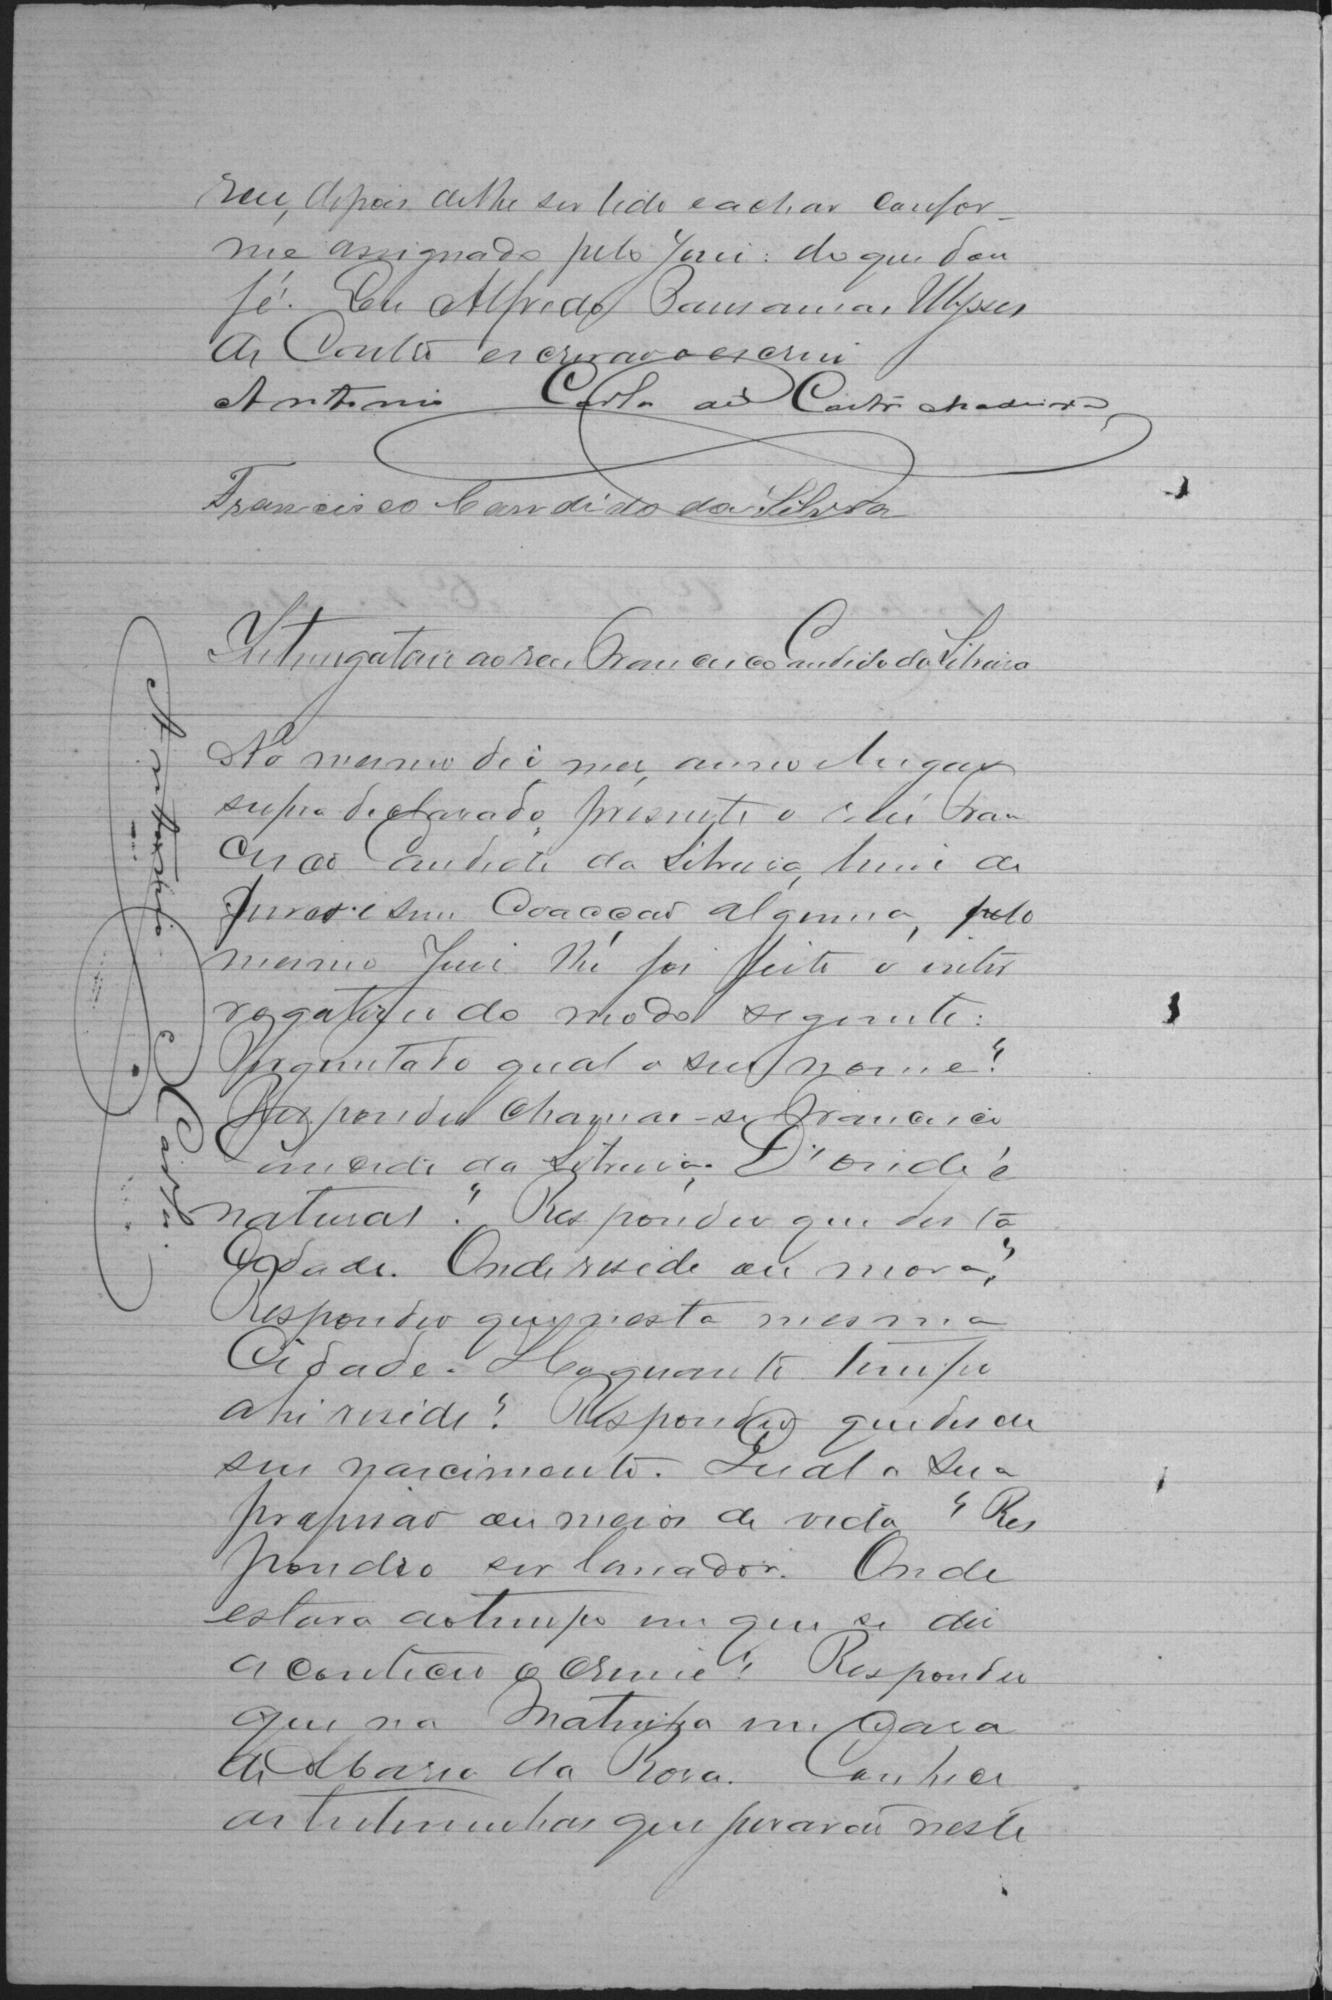 reu, depois delhe ser lido e achar confor-
me assignado pelo Juiz: do que dou
fé. Eu Alfredo Pausanias Ulysses
de Couto escrivao o escrevi
Antonio Carlos de Castro Madeira
Francisco Candido da Silvera
Interrogatorio ao reu Francisco Candido da Silveira
No mesmo dia mez, anno e lugar
supra declarado, presente o réu Fran
cisco Candido da Silveira, livre de
ferros e sem coacção alguma, pelo
mesmo Juiz lhe foi feito o inter
rogatorio do modo seguinte:
Perguntado qual o seu nome?
Respondeu chamar-se Francisco
Candido da Silveira. D'onde é
natural? Respondeu que desta
Cidade. Onde reside ou mora?
Respondeu que nesta mesma
Cidade. Ha quanto tempo
ahi reside? Respondeu que desde
seu nascimento. Qual a sua
profissão ou meios de vida? Res
pondeo ser lavrador. Onde
estava ao tempo em que se diz
aconteceu o crime? Respondeu
que na em casa
de Maria da Rosa. Conhece
as testemunhas que juraram neste
Antonio Carlos